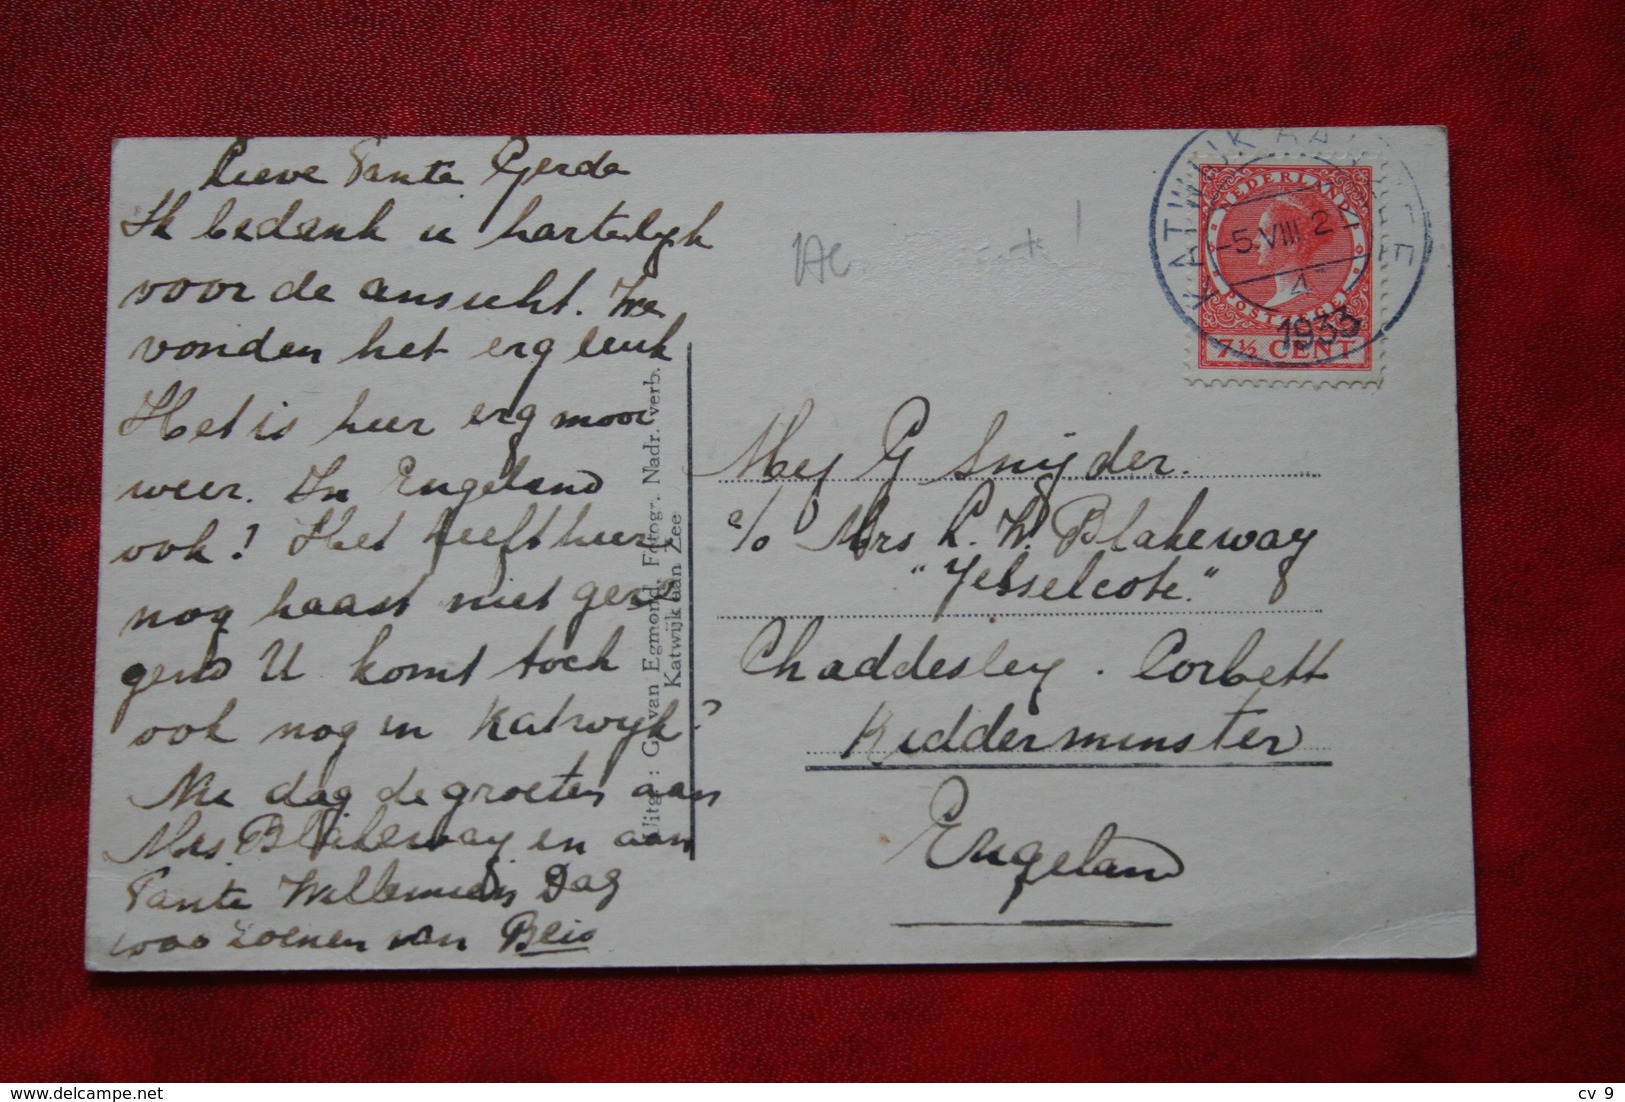 Lieve Tante Gerda
Ik bedank u hartelijk
voor de ansicht. We
vonden het erg leuk
Het is hier erg mooi
weer. In Engeland
ook? Het heeft hier
nog haast niet gere
gend U komt toch
ook nog in Katwijk?
Nu dag de groeten aan
Mrs Blakeway en aan
Tante Willemien Dag
1000 zoenen van
Uitg.: G. van Egmond, Fotogr. Nadr. verb.
Katwijk aan Zee
KATWIJK AAN ZEE
-5.VIII 2
4
1933
NEDERLAND
POSTZEGEL
7½ CENT
Mej G Snijder.
c/o Mrs L. W. Blakeway
"Ysselcote."
Chaddesley. Corbett
Kidderminster
Engeland
© delcampe.net
cv_9